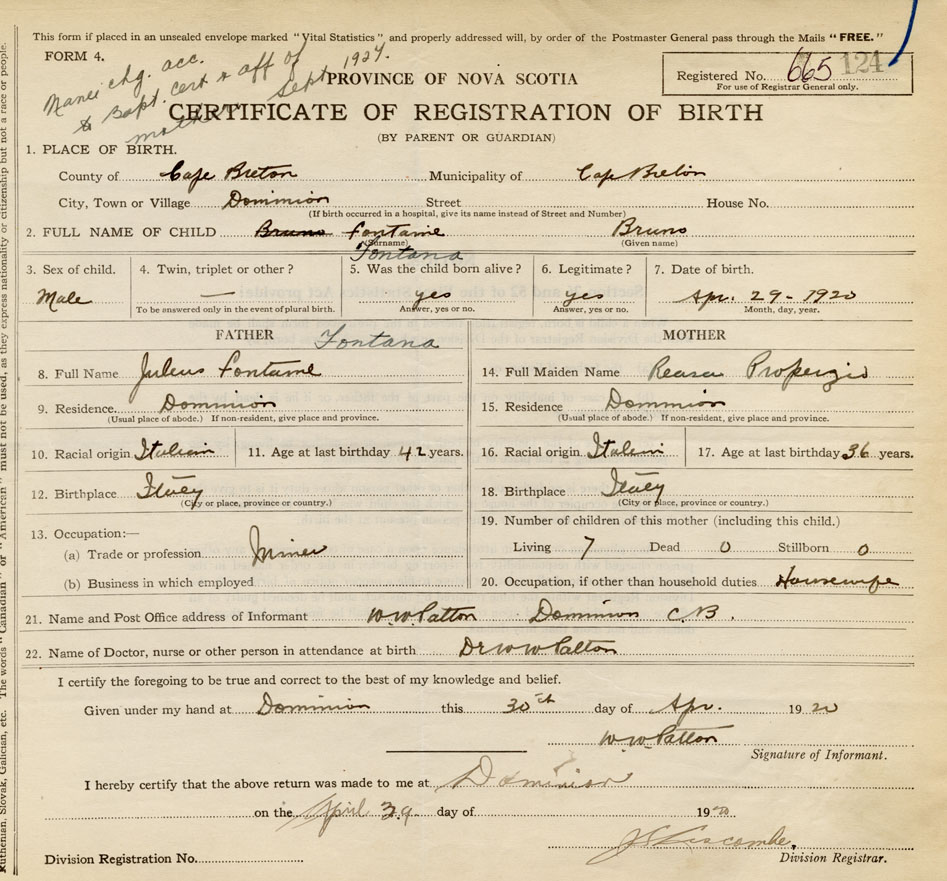 This form if placed in an unsealed envelope marked "Vital Statistics" and properly addressed will, by order of the Postmaster General pass through the Mails "FREE."
FORM 4.
Name chg. acc.
to Bapt. cert & aff of
mother Sept 1927.
PROVINCE OF NOVA SCOTIA
Registered No. 665 124
For use of Registrar General only.
CERTIFICATE OF REGISTRATION OF BIRTH
(BY PARENT OR GUARDIAN)
1. PLACE OF BIRTH.
County of Cape Breton Municipality of Cape Breton
City, Town or Village Dominion Street House No.
(If birth occurred in a hospital, give its name instead of Street and Number)
2. FULL NAME OF CHILD Bruno Fontame Bruno
(Surname) (Given name)
Fontana
3. Sex of child. 4. Twin, triplet or other? 5. Was the child born alive? 6. Legitimate? 7. Date of birth.
Male — yes yes Apr. 29 - 1920
To be answered only in the event of plural birth. Answer, yes or no. Answer, yes or no. Month, day, year.
FATHER Fontana MOTHER
8. Full Name Julius Fontame 14. Full Maiden Name Properzio
9. Residence Dominion 15. Residence Dominion
(Usual place of abode.) If non-resident, give place and province. (Usual place of abode.) If non-resident, give place and province.
10. Racial origin Italian 11. Age at last birthday 42 years. 16. Racial origin Italian 17. Age at last birthday 36 years.
12. Birthplace Italy 18. Birthplace Italy
(City or place, province or country.) (City or place, province or country.)
13. Occupation:— 19. Number of children of this mother (including this child.)
(a) Trade or profession Miner Living 7 Dead 0 Stillborn 0
(b) Business in which employed 20. Occupation, if other than household duties Housewife
21. Name and Post Office address of Informant W.W. Patton Dominion C.B.
22. Name of Doctor, nurse or other person in attendance at birth Dr W W Patton
I certify the foregoing to be true and correct to the best of my knowledge and belief.
Given under my hand at Dominion this 30th day of Apr. 1920
W.W. Patton
Signature of Informant.
I hereby certify that the above return was made to me at Dominion
on the April day of 1920
Division Registration No. Division Registrar.
Ruthenian, Slovak, Galician, etc. The words "Canadian" or "American" must not be used, as they express nationality or citizenship but not a race or people.